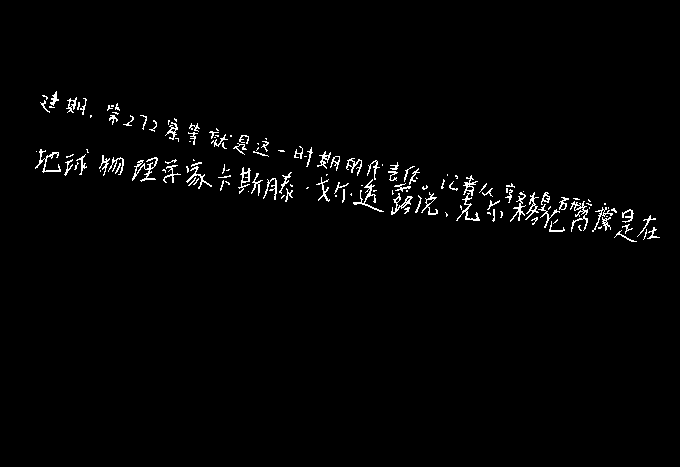 建期，第272窟等就是这一时期的代表作。记者从
地球物理学家卡斯滕·戈尔透露说、克尔是在